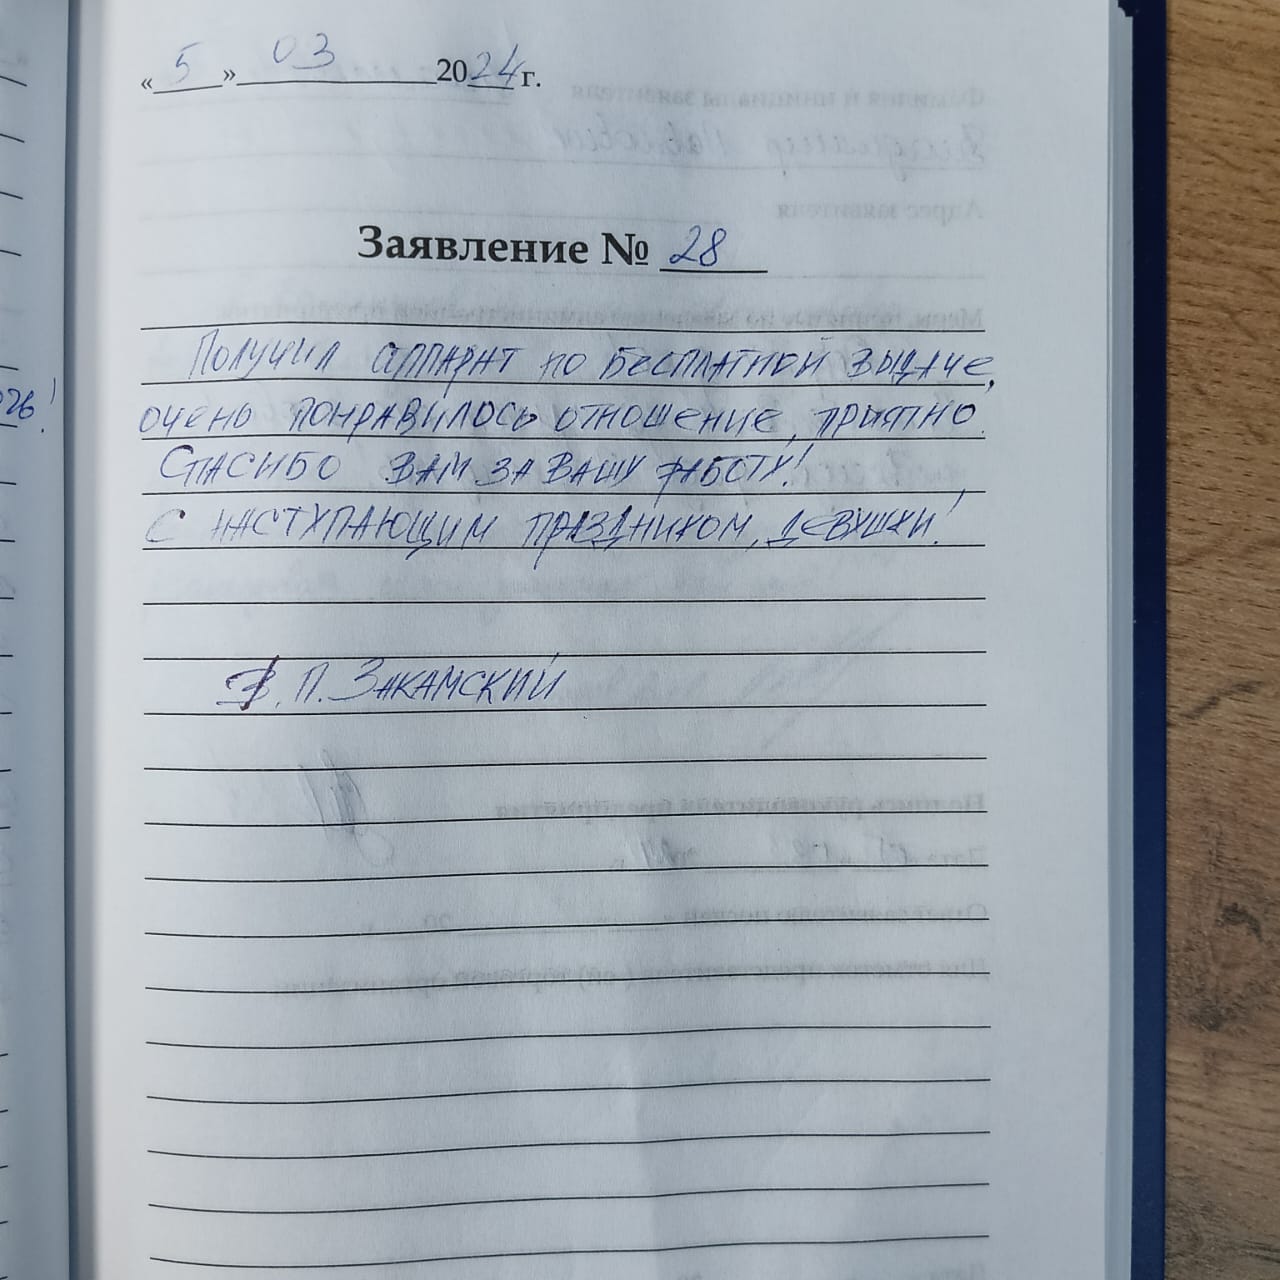 « 5 » 03 2024 г.
Заявление № 28
Получил аппарат по бесплатной выдаче,
очень понравилось отношение, приятно.
Спасибо вам за вашу работу!
С наступающим праздником, девушки!
В. П. Закамский